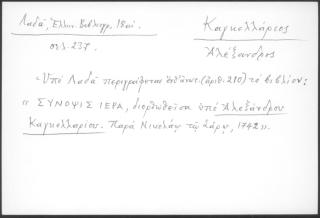 Λαδᾶ, Ἑλλην. Βιβλιογρ. 18αι.
σελ. 237.
Καγκελλάριος
Ἀλέξανδρος
Ὑπὸ Λαδᾶ περιγράφεται (ἀριθ. 210) τὸ βιβλίον:
« ΣΥΝΟΨΙΣ ΙΕΡΑ, διορθωθεῖσα ὑπὸ Ἀλεξάνδρου
Καγκελλαρίου. Παρὰ Νικολάῳ τῷ Σάρῳ, 1742 ».